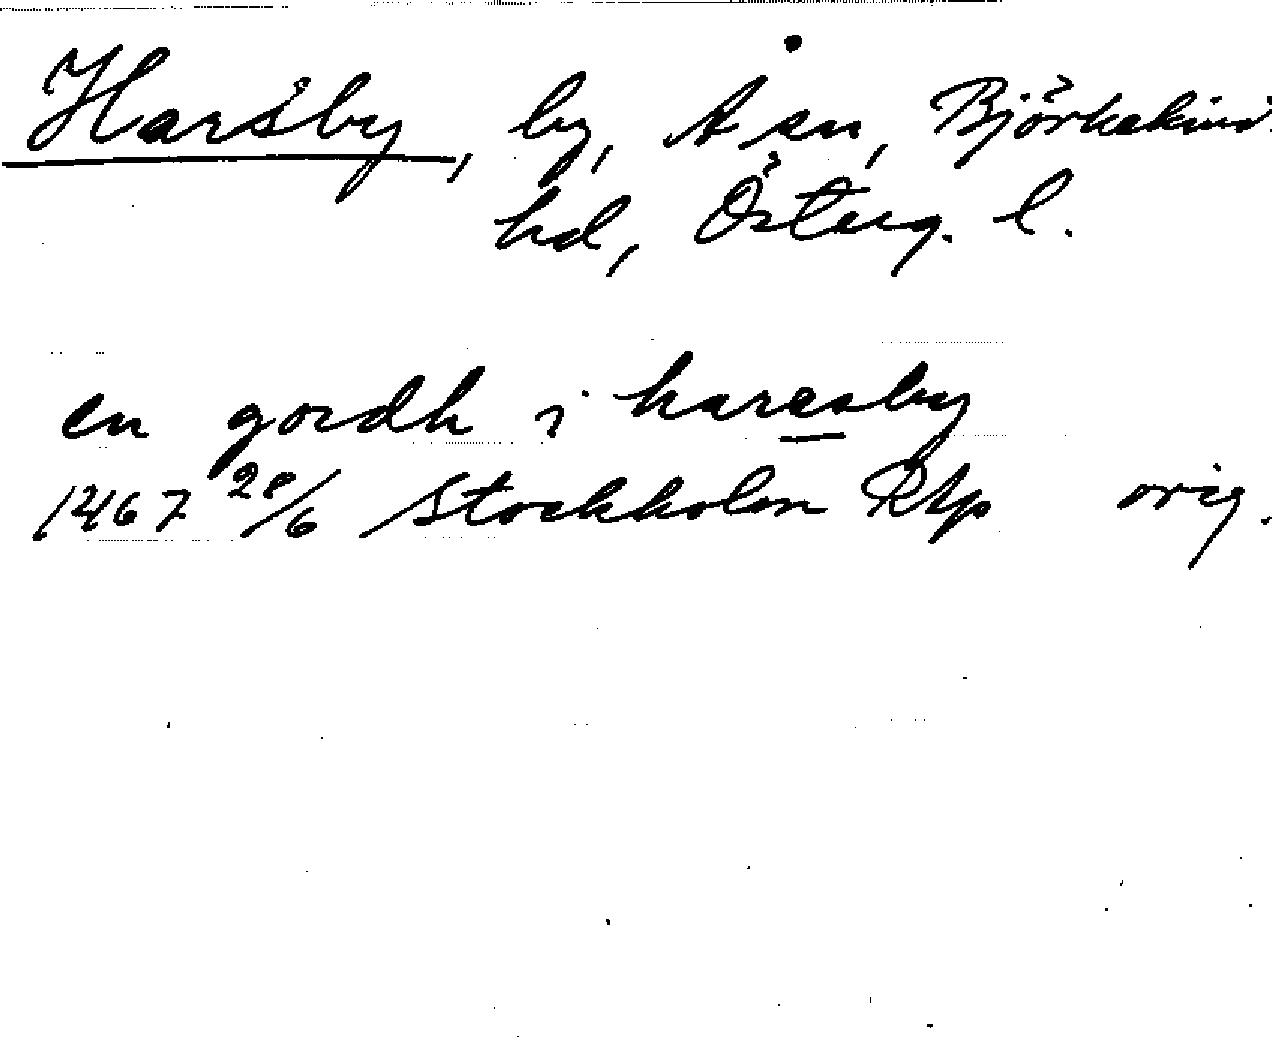 Harsby, by, Å sn, Björkekinds
hd, Österg. l.
en gordh i haresby
1467 28/6 Stockholm RAp orig.